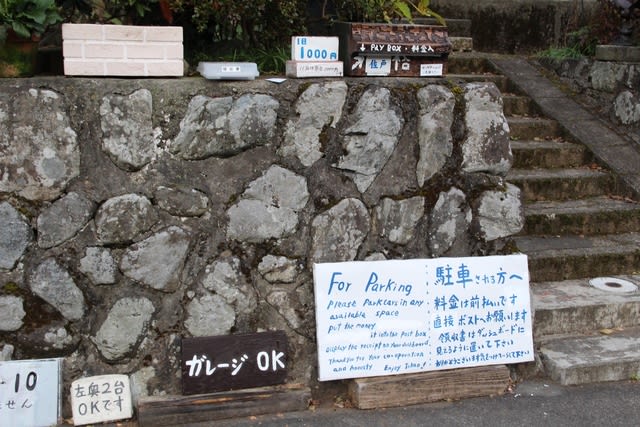 1日
1000円
PAY BOX・料金入
佐戸
ガレージ OK
10
せん
左奥2台
OKです
For Parking
Please Park cars in any
available space
put the money
into the Post box
display the receipt on your dashboard.
Thank you for Your co-operation
and honesty Enjoy
駐車される方へ
料金は前払いです
直接ポストへお願いします
領収書はダッシュボードに
見えるように置いて下さい
ありがとうございます